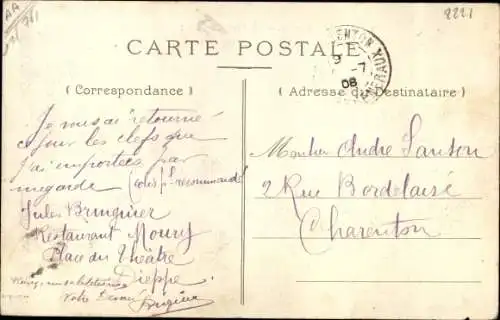 8221
CARTE POSTALE
( Correspondance )
( Adresse du Destinataire )
Je vous ai retourné
ce jour les clefs que
j'ai emportées par
megarde (colis p^l recommandé)
Jules Brunguier
Restaurant Moury
Place du Théâtre
Dieppe
Votre
Monsieur Andre Sanson
2 Rue Bordelaise
Charenton
08